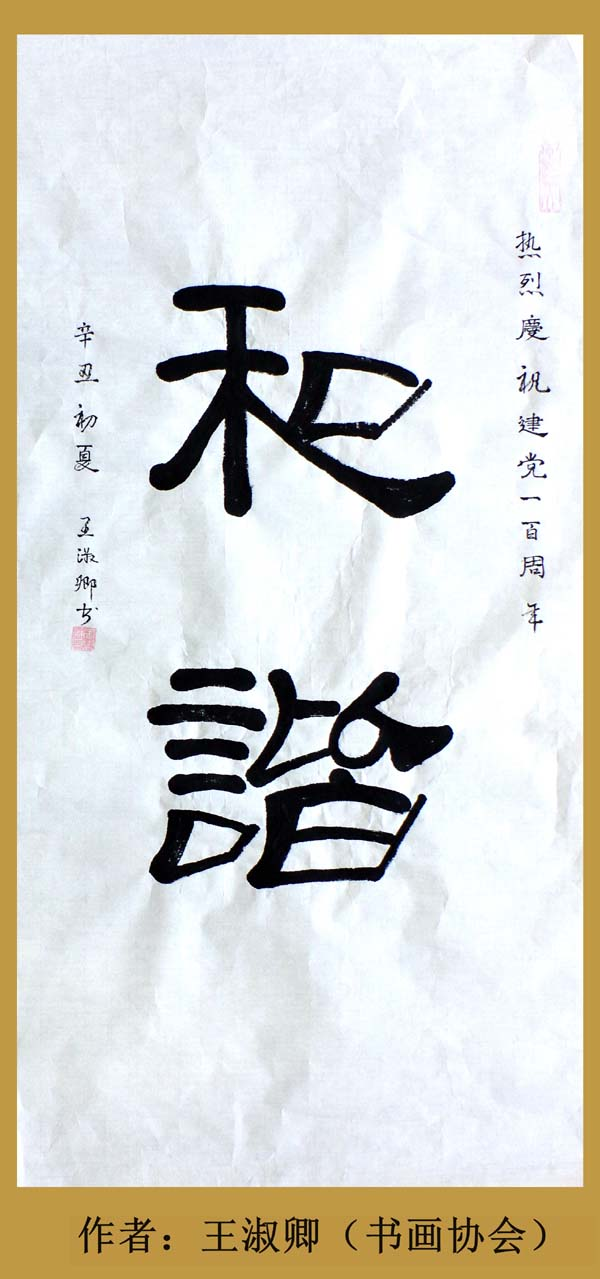 热烈慶祝建党一百周年
和
諧
辛丑初夏 王淑卿书
作者：王淑卿（书画协会）